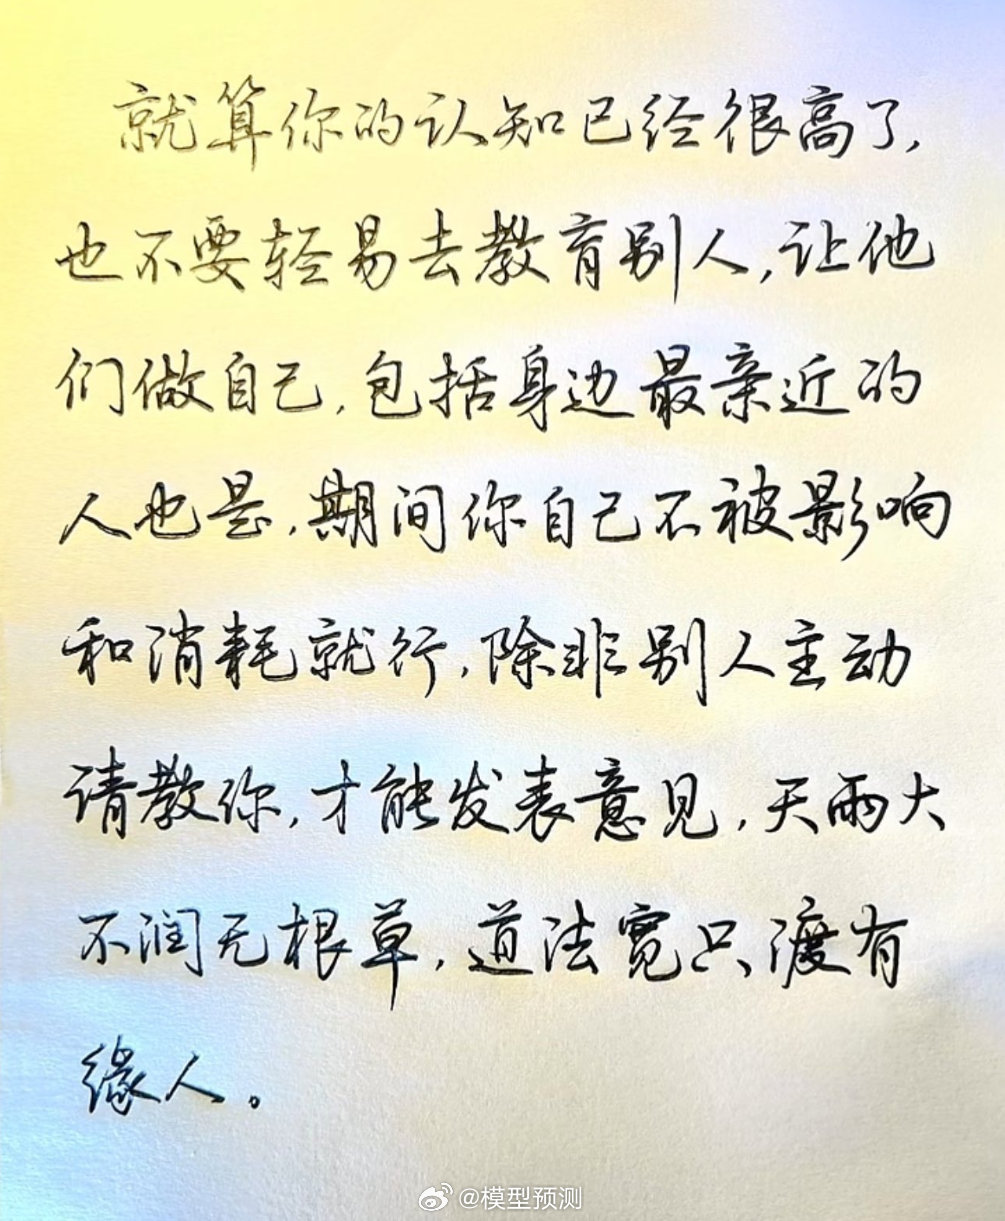 就算你的认知已经很高了,
也不要轻易去教育别人,让他
们做自己,包括身边最亲近的
人也是,期间你自己不被影响
和消耗就行,除非别人主动
请教你,才能发表意见,天雨大
不润无根草,道法宽只渡有
缘人。
@模型预测